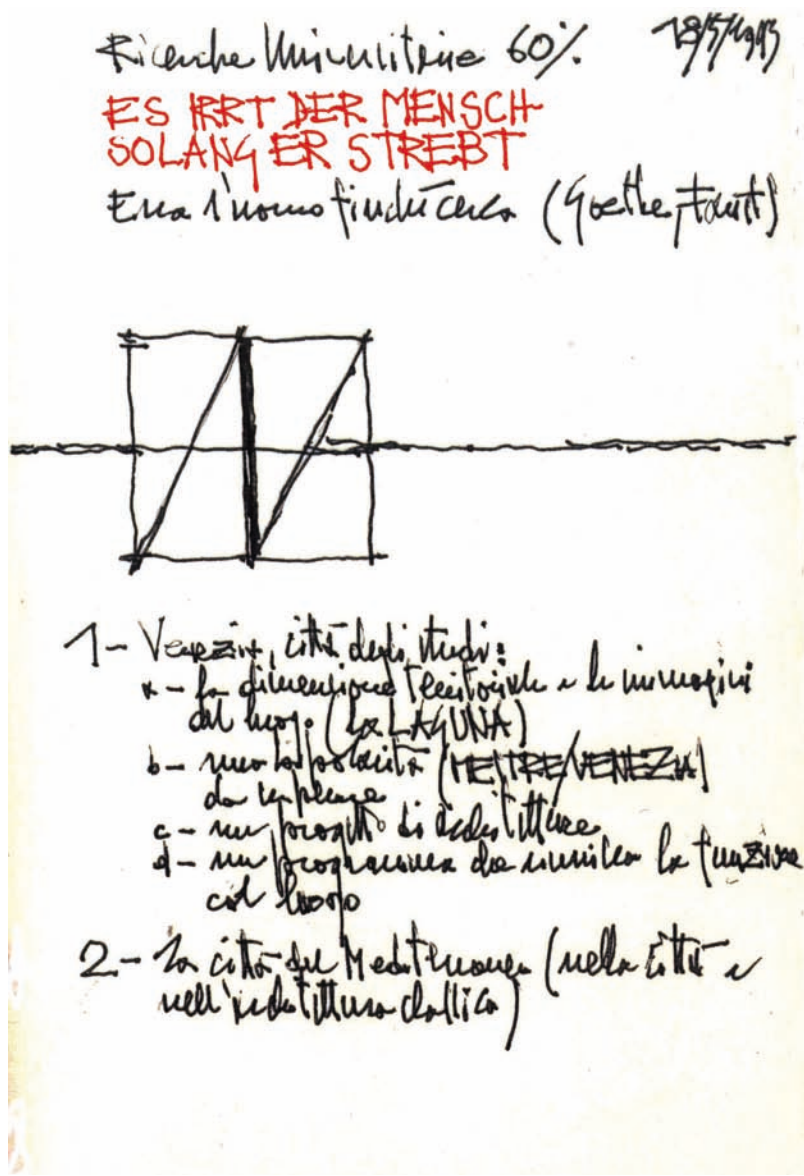 Ricerche Universitarie 60%
18/5/1993
ES IRRT DER MENSCH
SOLANG ER STREBT
Erra l'uomo finché cerca (Goethe, Faust)
1- Venezia, città degli studi:
a- la dimensione territoriale e le immagini
del luogo (la LAGUNA)
b- una bipolarità (MESTRE/VENEZIA)
da
c- un progetto di architettura
d- un programma che unifica la funzione
col luogo
2- La città del Mediterraneo (nella città e
nell'architettura classica)